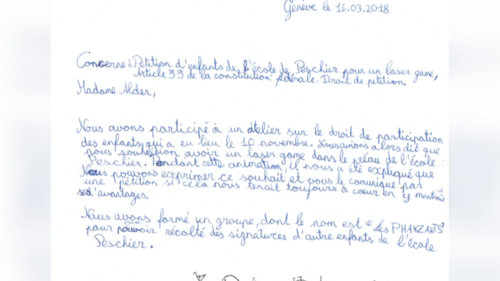 Genève le 16.03.2018
Concerne : Pétition d'enfants de l'école de Peschier pour un laser game,
Article 33 de la constitution fédérale. Droit de petition.
Madame Alder,
Nous avons participé à un atelier sur le droit de participation
des enfants, qui a eu lieu le 10 novembre. Nous avions alors dit que
nous souhaitions avoir un laser game dans le préau de l'école
Peschier. Pendant cette animation, il nous a été expliqué que
Nous pouvons exprimer ce souhait et vous le comuniqué par
une pétition si cela nous tenait toujours à coeur en y
d'avantages.
Nous avons formé un groupe, dont le nom est "les
pour pouvoir récolté des signatures d'autre enfants de l'école
Peschier.